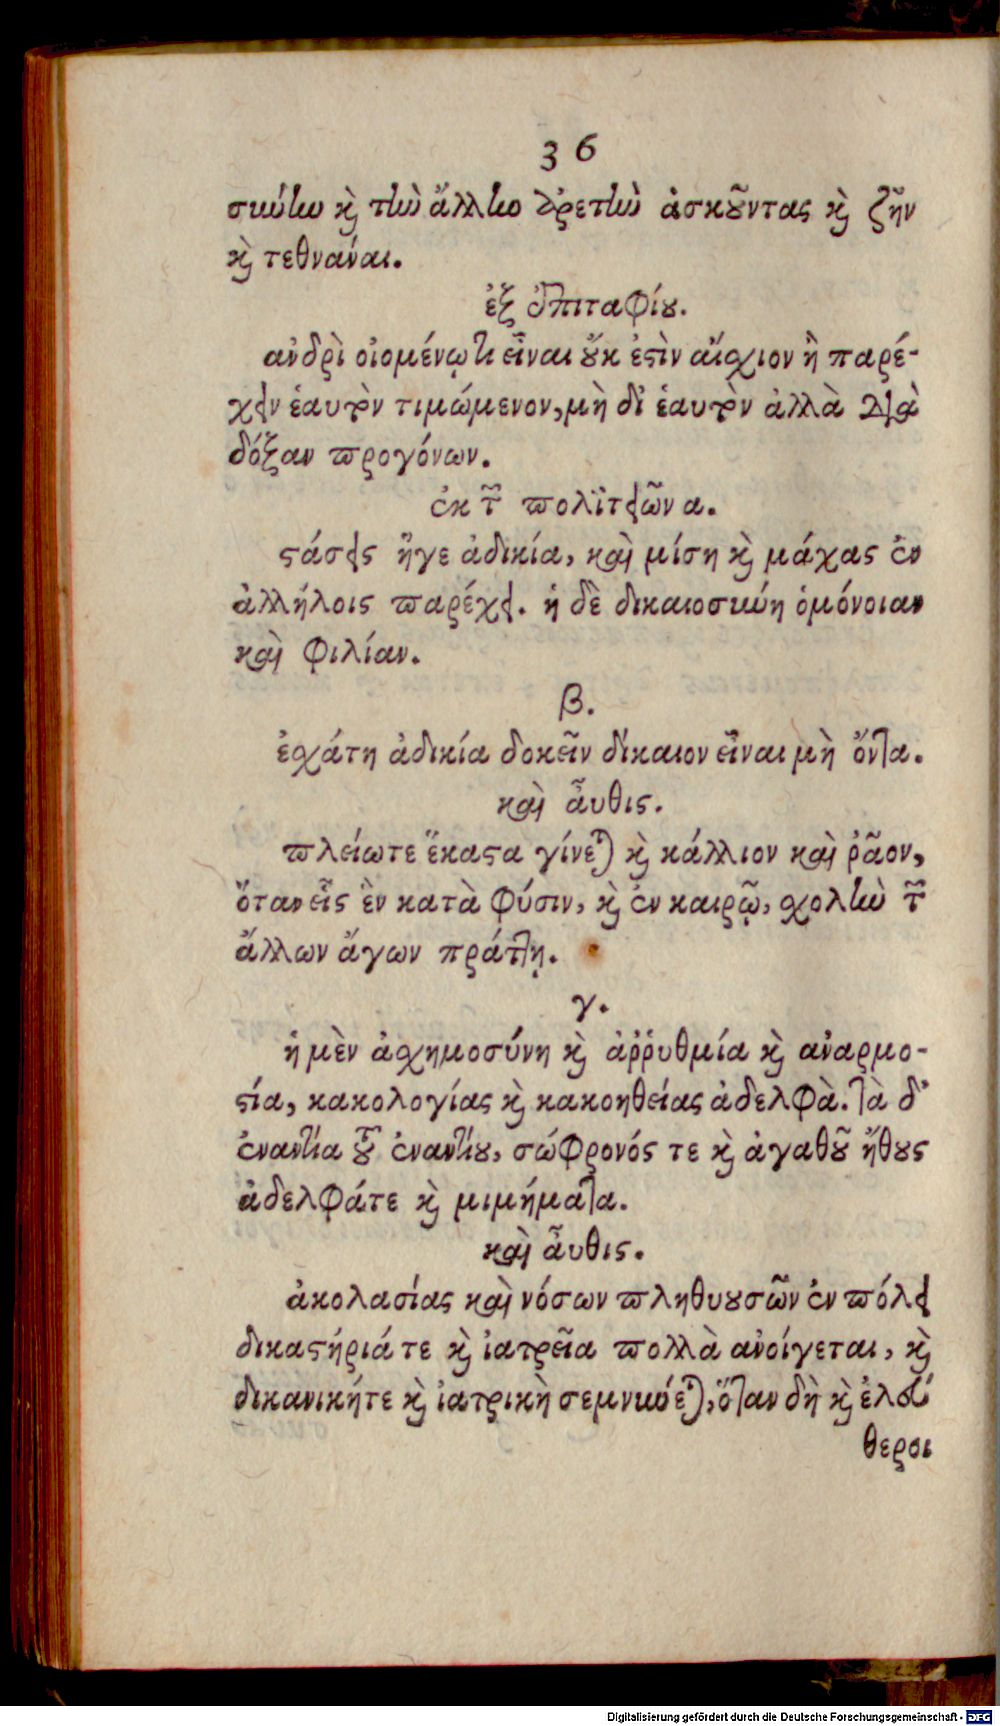 36
σύνην καὶ τὴν ἄλλην ἀρετὴν ἀσκοῦντας καὶ ζῆν
καὶ τεθνάναι.
ἐξ ἐπιταφίου.
ἀνδρὶ οἰομένῳ τι εἶναι οὔκ ἐστὶν αἴσχιον ἢ παρέ-
χειν ἑαυτὸν τιμώμενον, μὴ δι' ἑαυτὸν ἀλλὰ διὰ
δόξαν προγόνων.
ἐκ τῶν πολϊτειῶν α.
στάσεις ἥγε ἀδικία, καὶ μίση καὶ μάχας ἐν
ἀλλήλοις παρέχει. ἡ δὲ δικαιοσύνη ὁμόνοιαν
καὶ φιλίαν.
β.
ἐσχάτη ἀδικία δοκεῖν δίκαιον εἶναι μὴ ὄντα.
καὶ αὖθις.
πλείωτε ἕκαστα γίνεται καὶ κάλλιον καὶ ῥᾶον,
ὅταν εἷς ἓν κατὰ φύσιν, καὶ ἐν καιρῷ, σχολὴν τῶν
ἄλλων ἄγων πράττῃ.
γ.
ἡ μὲν ἀσχημοσύνη καὶ ἀῤῥυθμία καὶ ἀναρμο-
στία, κακολογίας καὶ κακοηθείας ἀδελφὰ. τὰ δ'
ἐναντία τοῦ ἐναντίου, σώφρονός τε καὶ ἀγαθοῦ ἤθους
ἀδελφάτε καὶ μιμήματα.
καὶ αὖθις.
ἀκολασίας καὶ νόσων πληθυουσῶν ἐν πόλει
δικαστήριά τε καὶ ἰατρεῖα πολλὰ ἀνοίγεται, καὶ
δικανικήτε καὶ ἰατρικὴ σεμνύνεται, ὅταν δὴ καὶ ἐλεύ
θεροι
Digitalisierung gefördert durch die Deutsche Forschungsgemeinschaft - DFG